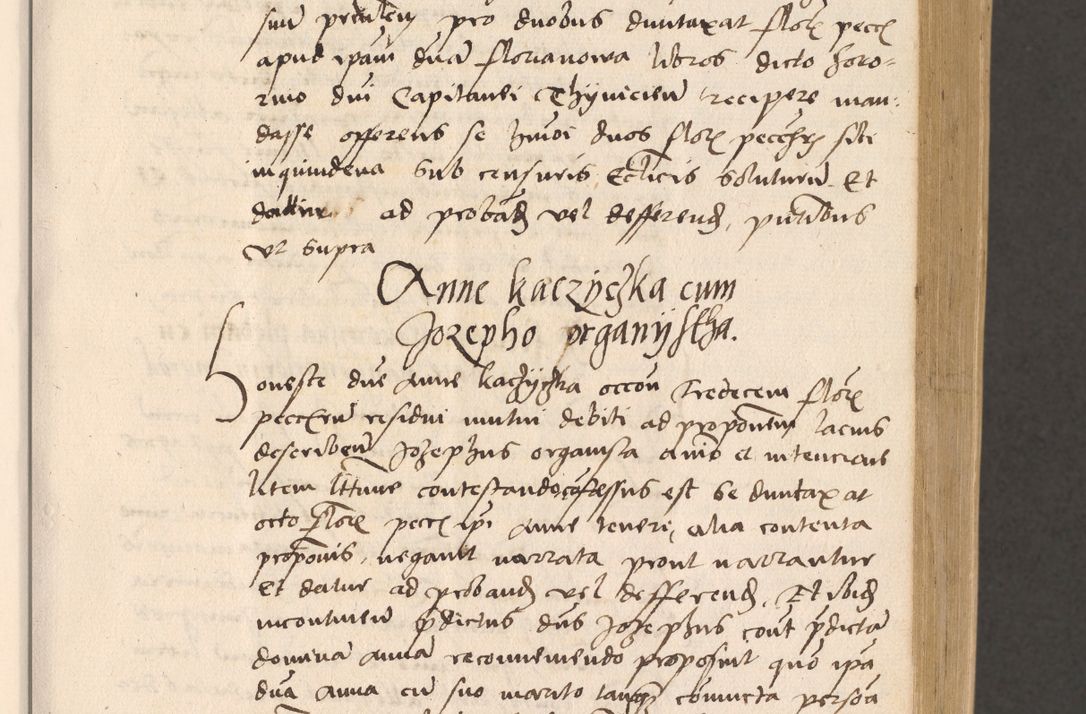 pro duobus duntaxat flor pecc
apud ipam dnam florianowa libros dicto soro-
rino dni Capitanei Thynicien recipere man-
dasse offerens se hmoi duos flor pecc sibi
in quindena sub censuris Ecclicis soluturum. Et
datur ad proband vel defferend, partibus
vt supra
Anne kaczyczka cum
Jozepho organystha.
Honeste dne Anne kaczyczka occon Tredecem flor
pecc residui mutui debiti ad proponem lacius
describen Jozephus organista animo et intencione
litem Ittime contestando cofessus est se duntaxat
octo flor pecc ipi Anne teneri, alia contenta
proponis, negauit narrata prout narrantur
Et datur ad proband vel defferend, Et ibid
incontinen pdictus dns Jozephus cont pdictam
dominam Annam reconueniendo proposuit quo ipa
dna Anna cu suo marito tanq coniuncta persona